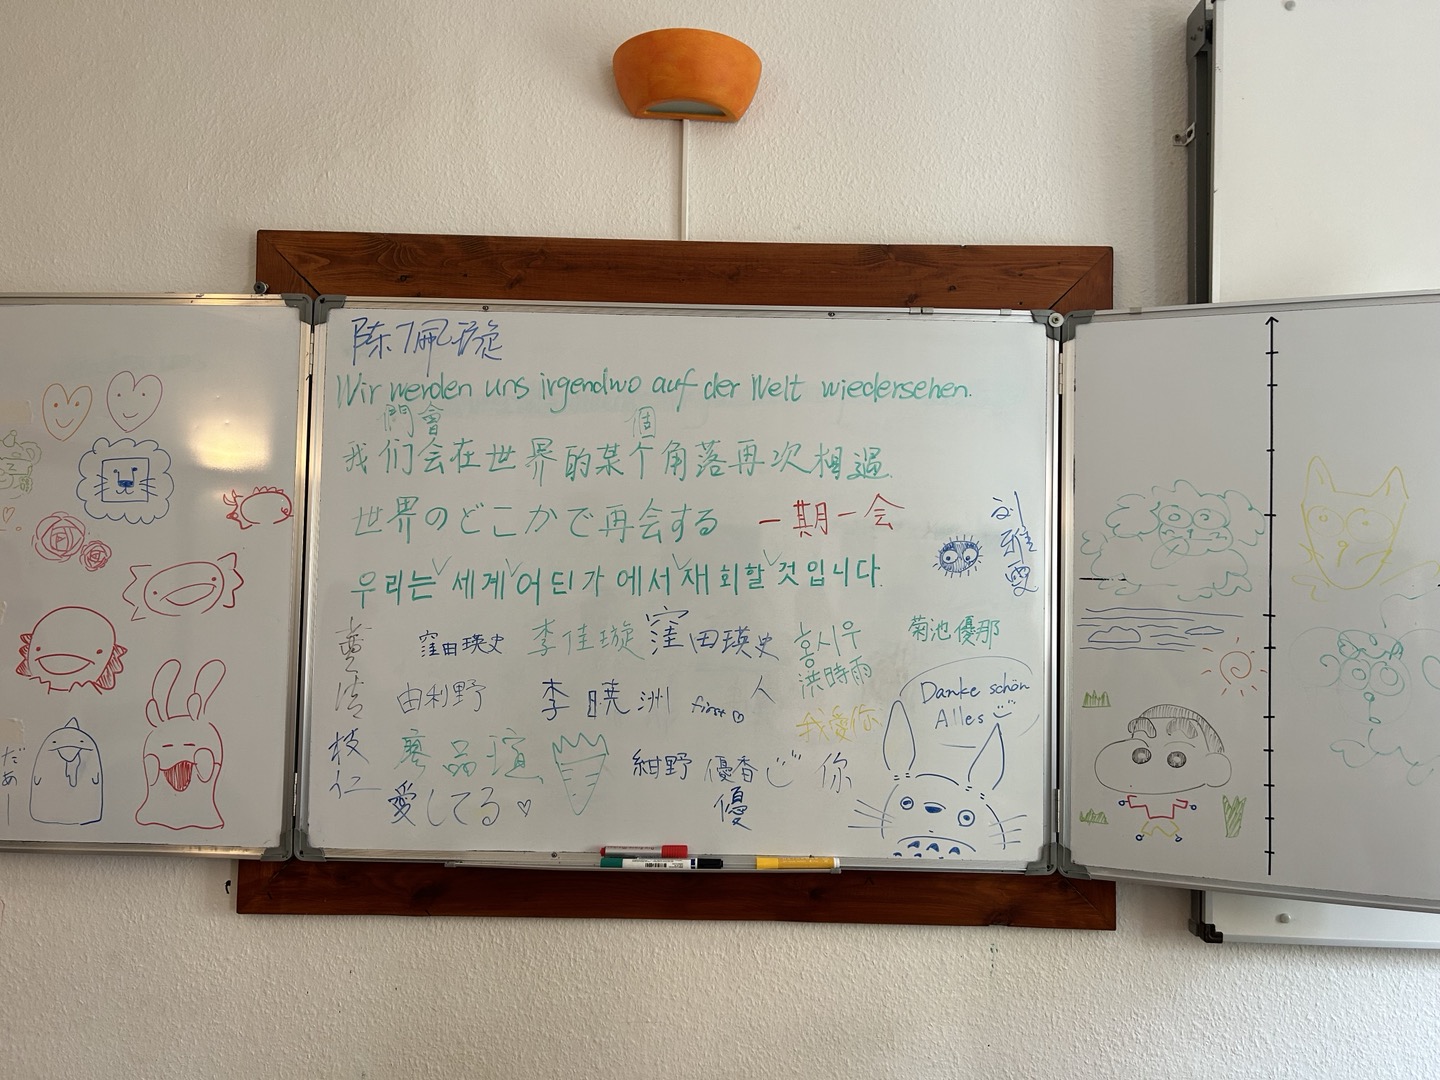 陈佩璇
Wir werden uns irgendwo auf der Welt wiedersehen.
們會 個
我们会在世界的某个角落再次相遇.
世界のどこかで再会する 一期一会
우리는 세계 어딘가에서 재회할 것입니다.
刘雅雯
窪田瑛史 李佳璇 窪田瑛史 홍시우 菊池優那
洪時雨
由利野 李曉洲 first 人
我愛你
Danke schön
Alles
枝仁
廖品瑄 紺野 優香 你
優
愛してる
だあー